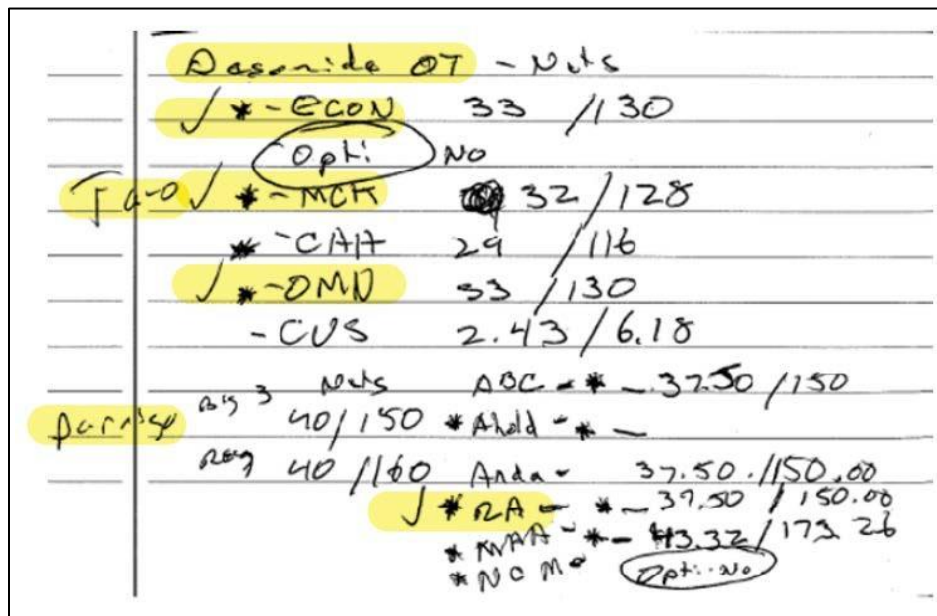 Desonide OT - Nets
✓ * - ECON 33 /130
Opti NO
✓ * - MCK 32 /128
* - CAH 29 /116
✓ * - OMN 33 /130
- CVS 2.43 / 6.18
Nets ABC - * - 37.50 /150
Big 3 40/150 * Ahold - * -
Reg 40 /160 Anda - 37.50 /150.00
✓ * RA - * - 37.50 / 150.00
* MAA - * - 43.32 / 173.26
* NCM - Opti - No